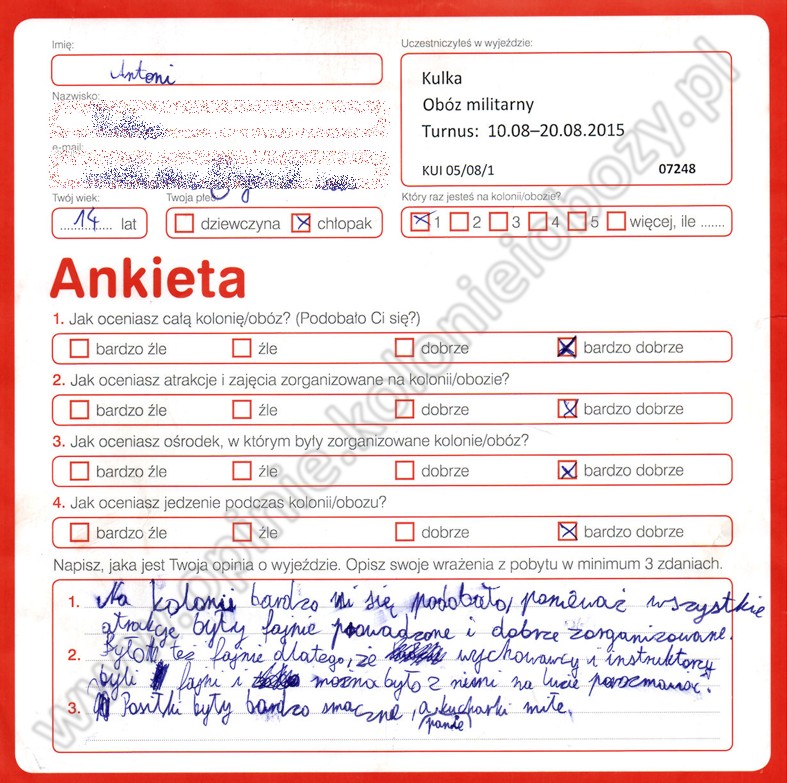 Imię:
Antoni
Nazwisko:
e-mail:
Twój wiek:
14 lat
Twoja płeć
dziewczyna chłopak
Uczestniczyłeś w wyjeździe:
Kulka
Obóz militarny
Turnus: 10.08–20.08.2015
KUI 05/08/1 07248
Który raz jesteś na kolonii/obozie?
1 2 3 4 5 więcej, ile .......
Ankieta
1. Jak oceniasz całą kolonię/obóz? (Podobało Ci się?)
bardzo źle źle dobrze bardzo dobrze
2. Jak oceniasz atrakcje i zajęcia zorganizowane na kolonii/obozie?
bardzo źle źle dobrze bardzo dobrze
3. Jak oceniasz ośrodek, w którym były zorganizowane kolonie/obóz?
bardzo źle źle dobrze bardzo dobrze
4. Jak oceniasz jedzenie podczas kolonii/obozu?
bardzo źle źle dobrze bardzo dobrze
Napisz, jaka jest Twoja opinia o wyjeździe. Opisz swoje wrażenia z pobytu w minimum 3 zdaniach.
1. Na kolonii bardzo mi się podobało, ponieważ wszystkie
atrakcje były fajnie prowadzone i dobrze zorganizowane.
2. Było też fajnie dlatego, że wychowawcy i instruktorzy
byli fajni i można było z nimi na luzie porozmawiać.
3. Posiłki były bardzo smaczne, a kucharki miłe.
(panie)
www.opinie.kolonieiobozy.pl